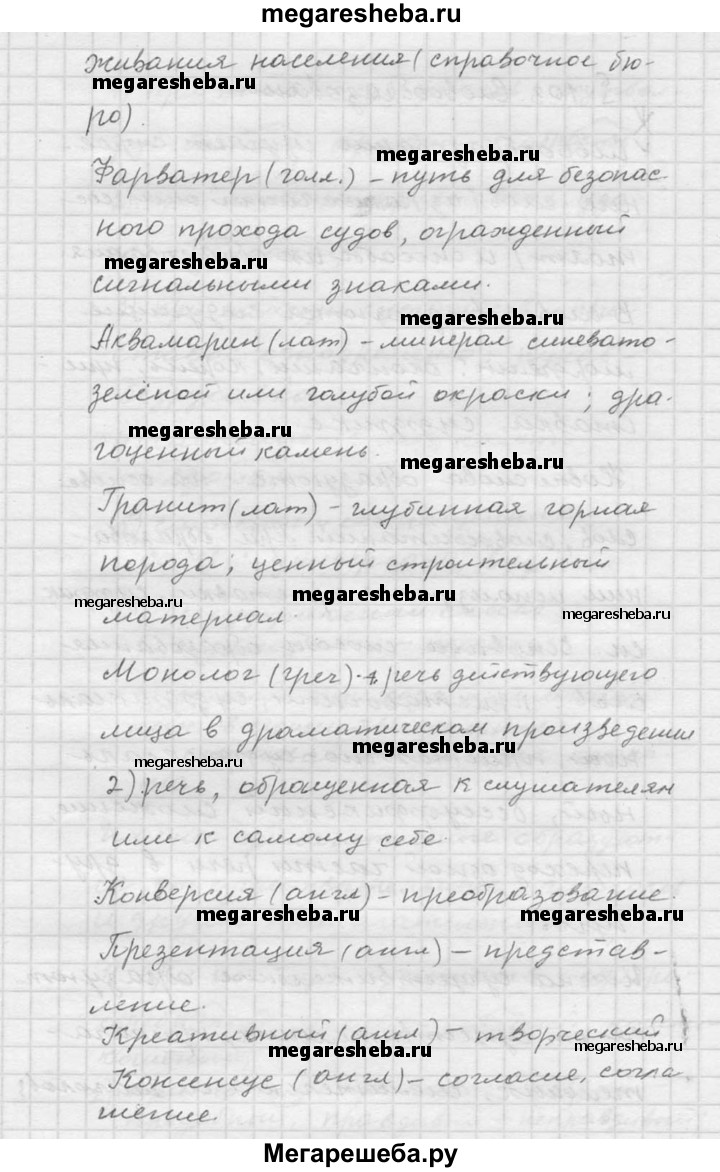 megaresheba.ru
живания населения (справочное бю-
megaresheba.ru
ро).
megaresheba.ru
Фарватер (голл.) – путь для безопас-
ного прохода судов, огражденный
megaresheba.ru
сигнальными знаками.
megaresheba.ru
Аквамарин (лат) – минерал синевато-
зелёной или голубой окраски; дра-
megaresheba.ru
гоценный камень.
megaresheba.ru
Гранит (лат) – глубинная горная
порода; ценный строительный
megaresheba.ru megaresheba.ru megaresheba.ru
материал.
Монолог (греч) 1. речь действующего
лица в драматическом произведении
megaresheba.ru
megaresheba.ru
2) речь, обращенная к слушателям
или к самому себе.
Конверсия (англ) – преобразование.
megaresheba.ru megaresheba.ru
Презентация (англ) – представ-
ление.
Креативный (англ) – творческий
megaresheba.ru megaresheba.ru
Консенсус (англ) – согласие, согла-
шение.
Мегарешеба.ру